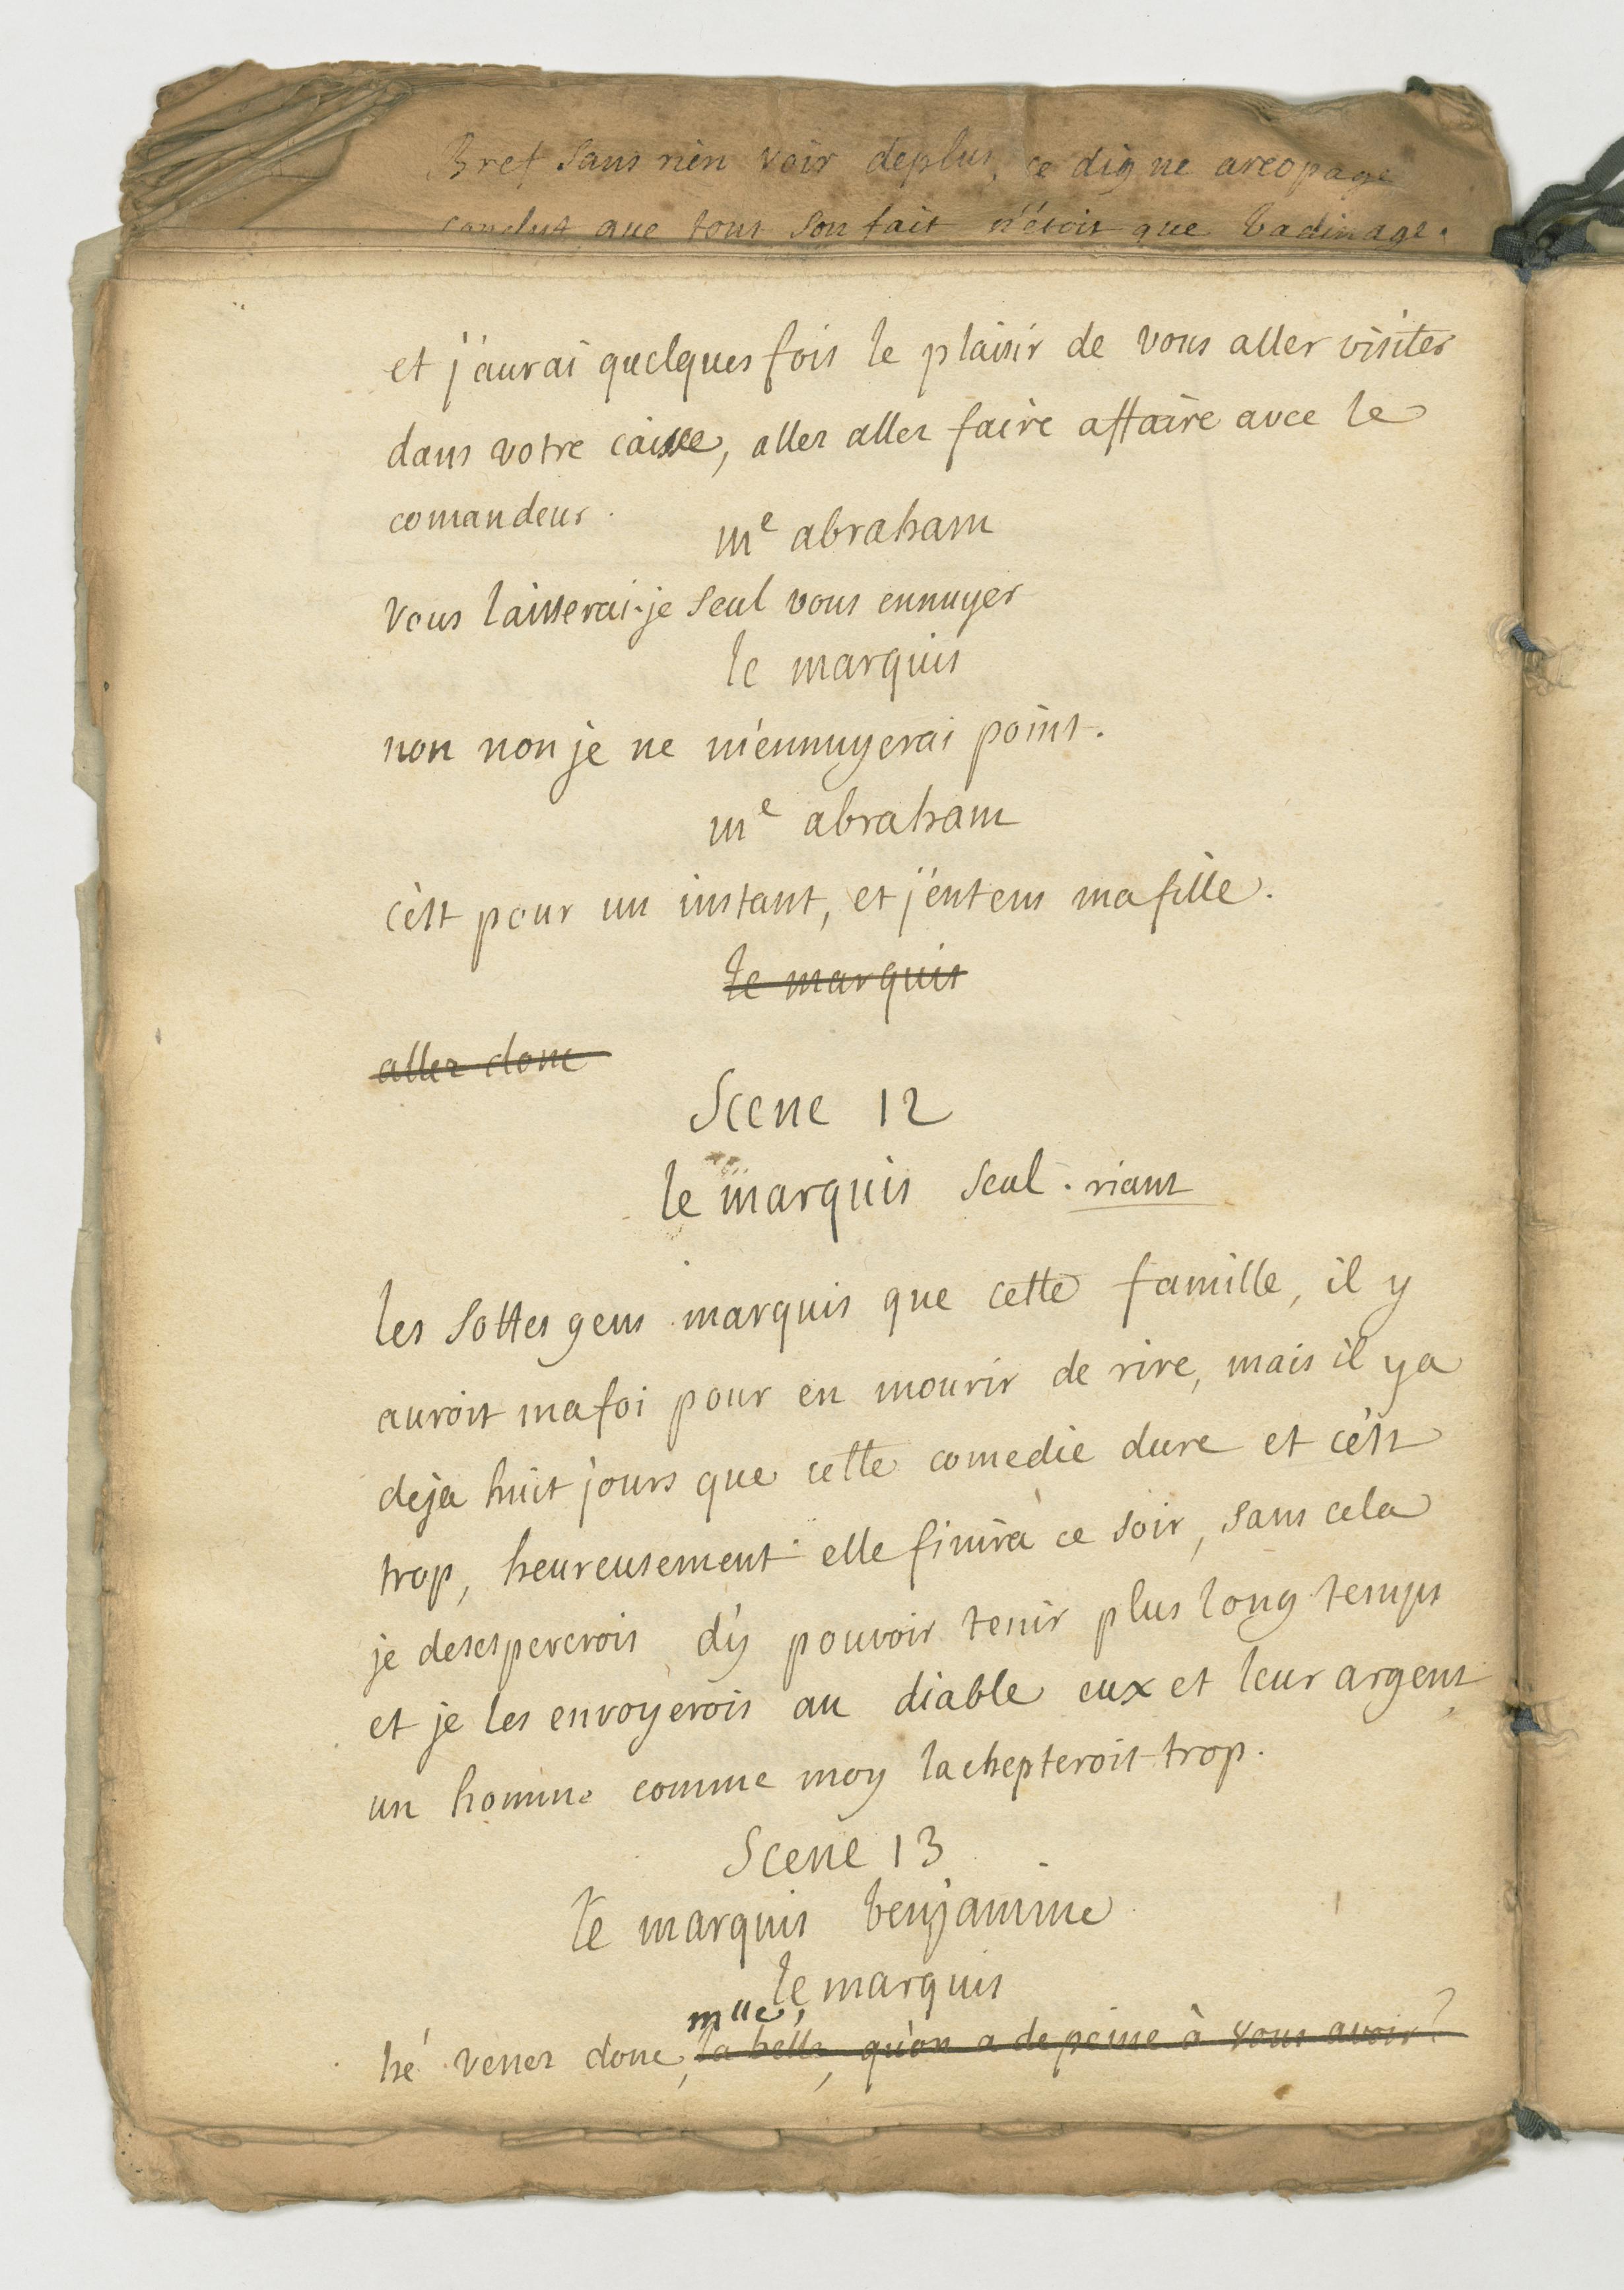 Bref sans rien voir deplus, ce digne areopage
conclut que tout son fait n'étoit que badinage.
et j'aurai quelques fois le plaisir de vous aller visiter
dans votre caisse, allez allez faire affaire avec le
comandeur.
me abraham
vous laisserai-je seul vous ennuyer
le marquis
non non je ne m'ennuyerai point.
me abraham
c'est pour un instant, et j'entens ma fille.
le marquis
allez donc
Scene 12
le marquis seul. riant
les sottes gens marquis que cette famille, il y
auroit mafoi pour en mourir de rire, mais il ya
deja huit jours que cette comedie dure et c'est
trop, heureusement elle finira ce soir, sans cela
je desespererois d'y pouvoir tenir plus long temps
et je les envoyerois au diable eux et leur argent,
un homme comme moy lachepteroit trop.
Scene 13
le marquis benjamine
le marquis
mlle,
hé venez donc, la belle, qu'on a de peine à vous avoir?